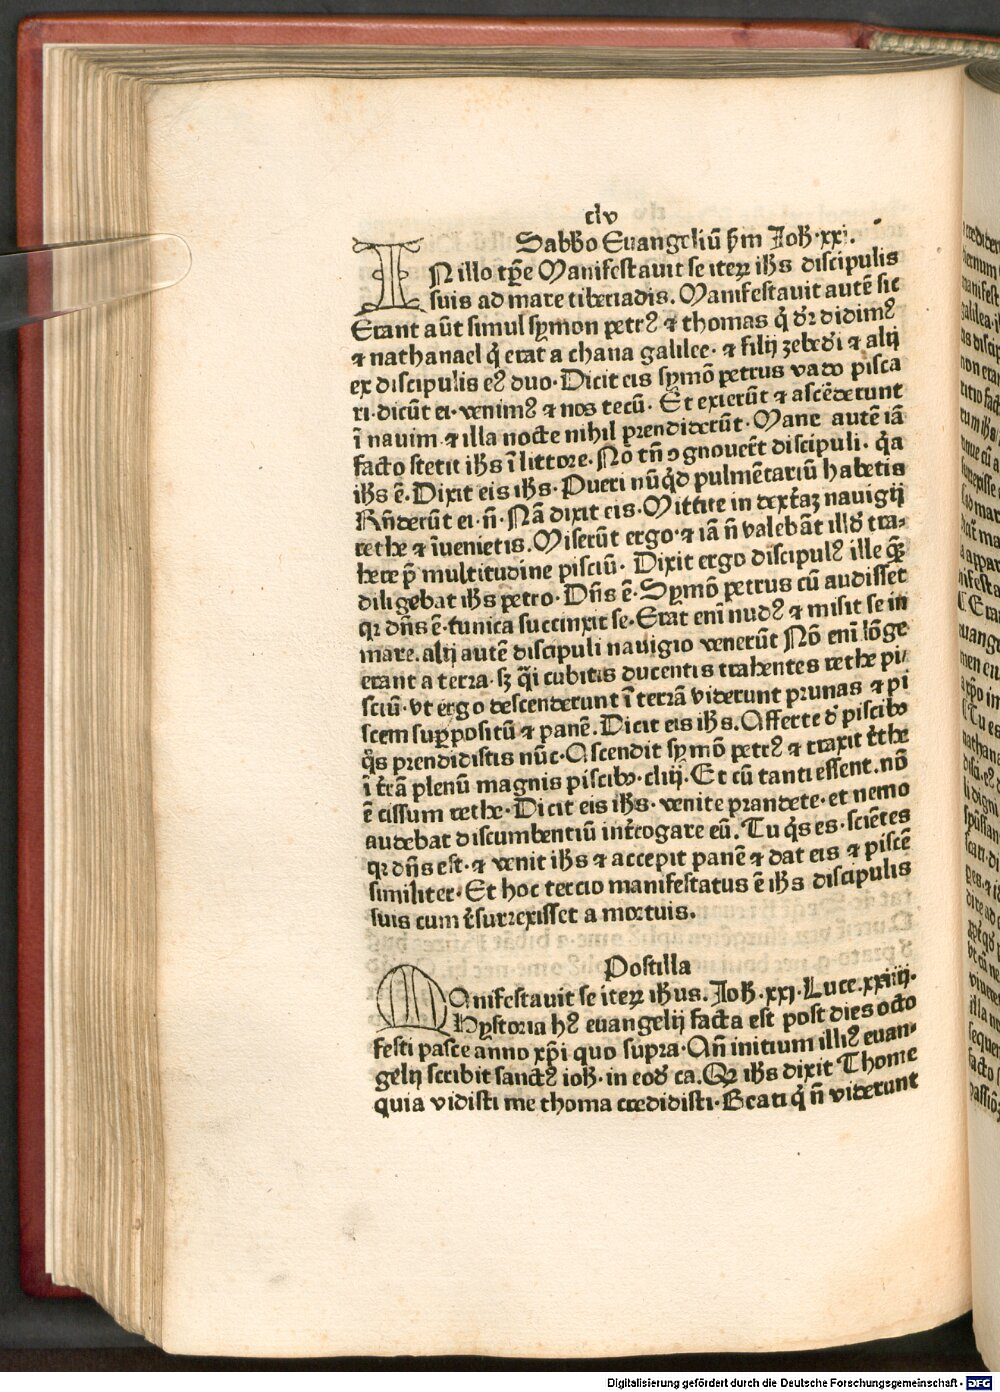 clv
Sabbo Euangeliū ẜm Joħ.xxi.
IN illo tp̄e Manifestauit se iteꝝ ihs̄ discipulis
suis ad mare tiberiadis. Manifestauit autē sic
Erant aūt simul symon petrꝰ ⁊ thomas q̇ dꝛ didimꝰ
⁊ nathanael q̇ erat a chana galilee. ⁊ filij zebedi ⁊ alij
ex discipulis eꝰ duo. Dicit eis symō petrus vado pisca
ri. dicūt ei. venimꝰ ⁊ nos tecū. Et exierūt ⁊ ascēderunt
ī nauim. ⁊ illa nocte nihil prendiderūt. Mane autē iā
facto stetit ihs̄ ī littore. Nō tn̄ ꝯgnouer̄t discipuli. q̇a
ihs̄ ē. Dixit eis ihs̄. Pueri nūq̇d pulmētariū habetis
Rn̄derūt ei. n̄. Nā dixit eis. Mittite in dext̄aꝫ nauigij
rethe ⁊ īuenietis. Miserūt ergo. ⁊ iā n̄ valebāt illd̄ tra-
here p̄ multitudine pisciū. Dixit ergo discipulꝰ ille quē
diligebat ihs̄ petro. Dn̄s ē. Symō petrus cū audisset
qꝛ dn̄s ē. tunica succinxit se. Erat eni nudꝰ ⁊ misit se in
mare. alij autē discipuli nauigio venerūt Nō eni lōge
erant a terra. sꝫ q̇i cubitis ducentis trahentes rethe pi/
sciū. vt ergo descenderunt ī terrā viderunt prunas ⁊ pi
scem suꝑpositū ⁊ panē. Dicit eis ihs̄. Afferte d̄ piscibꝰ
q̇s prendidistis nūc. Ascendit symō petrꝰ ⁊ traxit r̄the
ī t̄rā plenū magnis piscibꝰ. cliij. Et cū tanti essent. nō
ē cissum rethe. Dicit eis ihs̄. venite prandete. et nemo
audebat discumbentiū int̄rogare eū. Tu q̇s es. sciētes
qꝛ dn̄s est. ⁊ venit ihs̄ ⁊ accepit panē ⁊ dat eis ⁊ piscē
similiter. Et hoc tercio manifestatus ē ihs̄ discipulis
suis cum r̄surrexisset a mortuis.
Postilla
MAnifestauit se iteꝝ ihus. Joħ.xxj. Luce.xxiiij.
Hystoria hꝰ euangelij facta est post dies octo
festi pasce anno xp̄i quo supra. An̄ initium illiꝰ euan-
gelij scribit sanctꝰ ioħ. in eod̄ ca. Qꝛ ihs̄ dixit Thome
quia vidisti me thoma credidisti. Beati q̇ n̄ viderunt
Digitalisierung gefördert durch die Deutsche Forschungsgemeinschaft - DFG